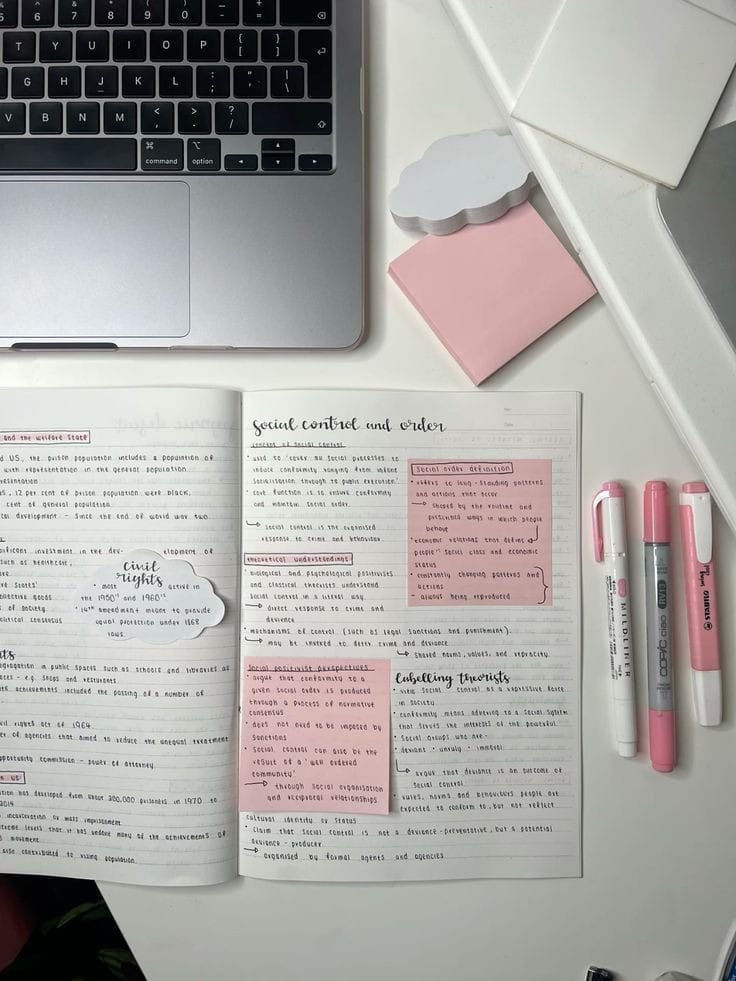 6 7 8 9 0 - + =
T Y U I O P { [ } ]
G H J K L : ; " ' | \
V B N M < , > . ? /
⌘ command option
and the welfare state
d US, the prison population includes a population of
with representation in the general population
12 per cent of prison population were black,
cent of general population
development - since the end of world war two
significant investment in the dev- elopment of
such as healthcare,
States'
goods
of society
political consensus
civil
rights
• most active in
the 1950's and 1960's
• 14th amendment meant to provide
equal protection under 1868
laws.
in public spaces such as schools and libraries
- e.g. shops and restaurants
achievements included the passing of a number of
civil rights act of 1964
of agencies that aimed to reduce the unequal treatment
opportunity commission - power of attorney
in US
has developed from about 200,000 prisoners in 1970 to
2014
incarceration or mass imprisonment
extreme levels that it has undone many of the achievements of
movement
also contributed to rising population.
social control and order
concept of social control
• used to 'cover all social processes to
induce conformity ranging from infant
socialisation through to public execution'
• core function is to ensure conformity
and maintain social order.
↳ social control is the organised
response to crime and behaviour
theoretical understandings
• biological and psychological positivists
and classical theorists understand
social control in a literal way
↳ direct response to crime and
deviance
• mechanisms of control (such as legal sanctions and punishment).
↳ may be invoked to deter crime and deviance
↳ shared norms, values, and reprocity.
social order definition
• refers to long-standing patterns
and actions that occur
→ shaped by the routine and
prescribed ways in which people
behave
• economic relations that define
people's social class and economic
status
• constantly changing patterns and
actions
- always being reproduced
social positivist perspectives
• argue that conformity to a
given social order is produced
through a process of normative
consensus
• does not need to be imposed by
sanctions
• social control can also be the
result of a 'well ordered
community'
→ through social organisation
and reciprocal relationships
labelling theorists
• view social control as a repressive force
in society
• conformity means adhering to a social system
that serves the interests of the powerful
• social groups who are -
• deviant • unruly • immoral
↳ argue that deviance is an outcome of
social control
• rules, norms and behaviours people are
expected to conform to, but not reflect
cultural identity or status
• claim that social control is not a deviance-preventative, but a potential
deviance - producer
↳ organised by formal agents and agencies
MILDLINER
COPIC ciao
STABILO swing cool